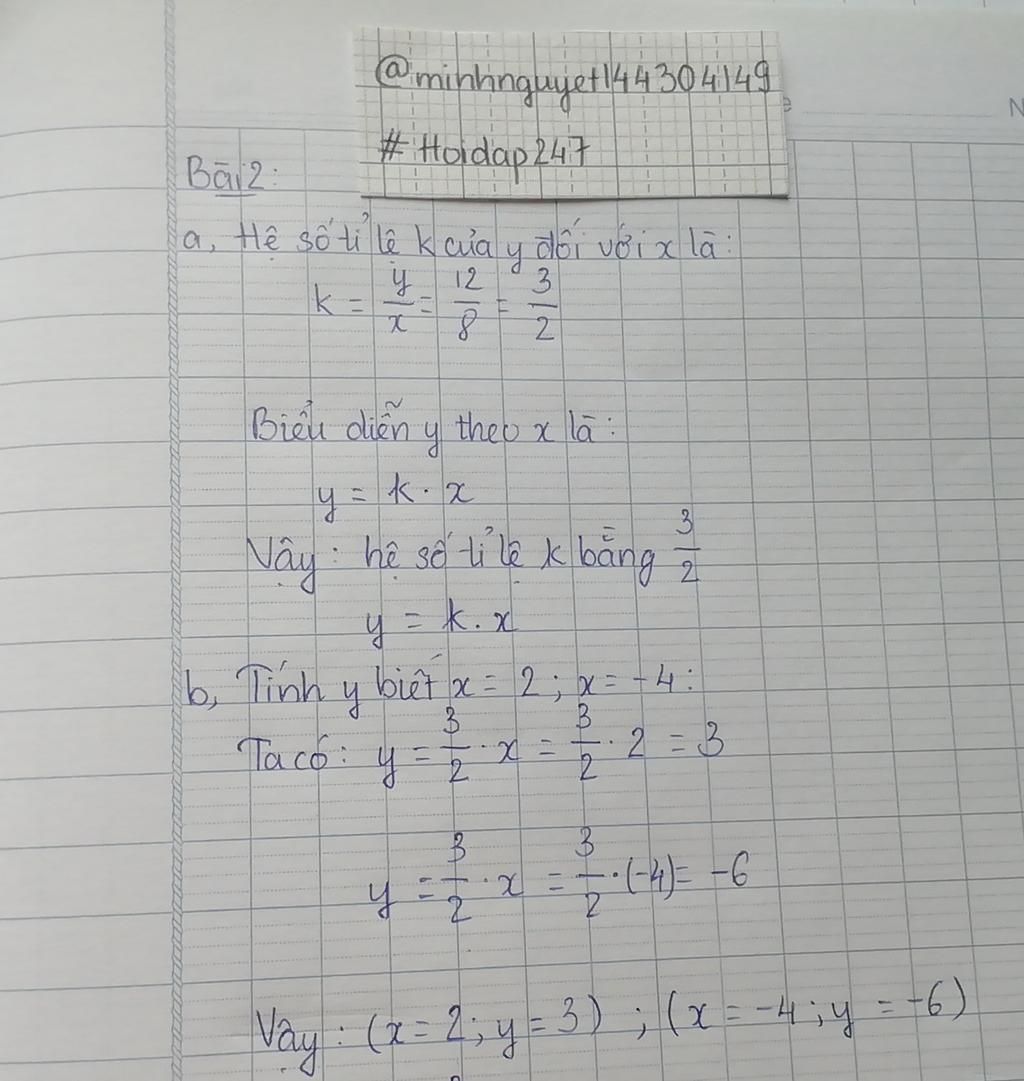 @minhnguyet144304149
#Hoidap247
Bài 2:
a, Hệ số tỉ lệ k của y đối với x là:
k = y/x = 12/8 = 3/2
Biểu diễn y theo x là:
y = k . x
Vậy: hệ số tỉ lệ k bằng 3/2
y = k . x
b, Tính y biết x = 2 ; x = -4 :
Ta có: y = 3/2 . x = 3/2 . 2 = 3
y = 3/2 . x = 3/2 . (-4) = -6
Vậy : (x = 2 ; y = 3) ; (x = -4 ; y = -6)